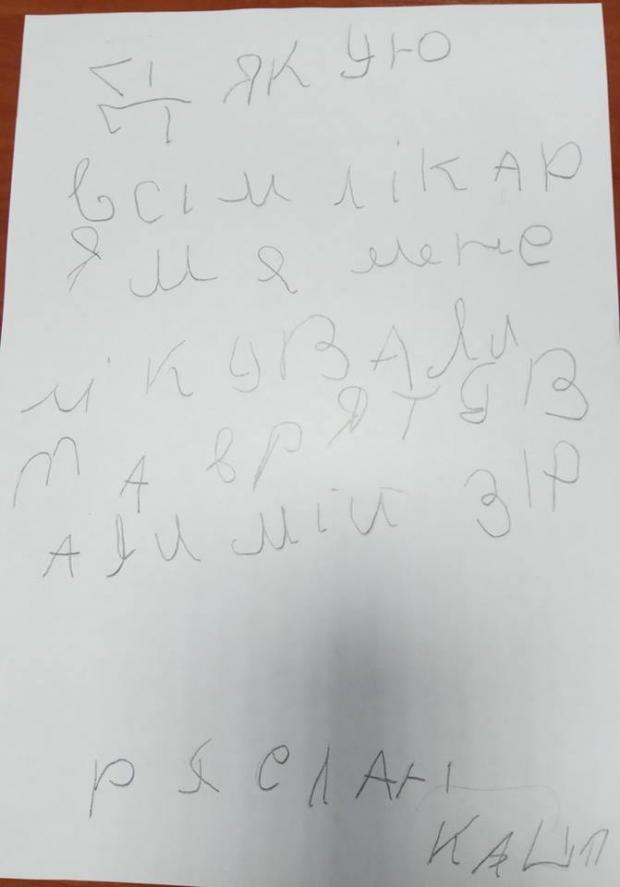 ДЯКУЮ
всім лікАР
ям я мене
лікуВАли
та врЯТУВ
Али мій ЗІР
Руслан